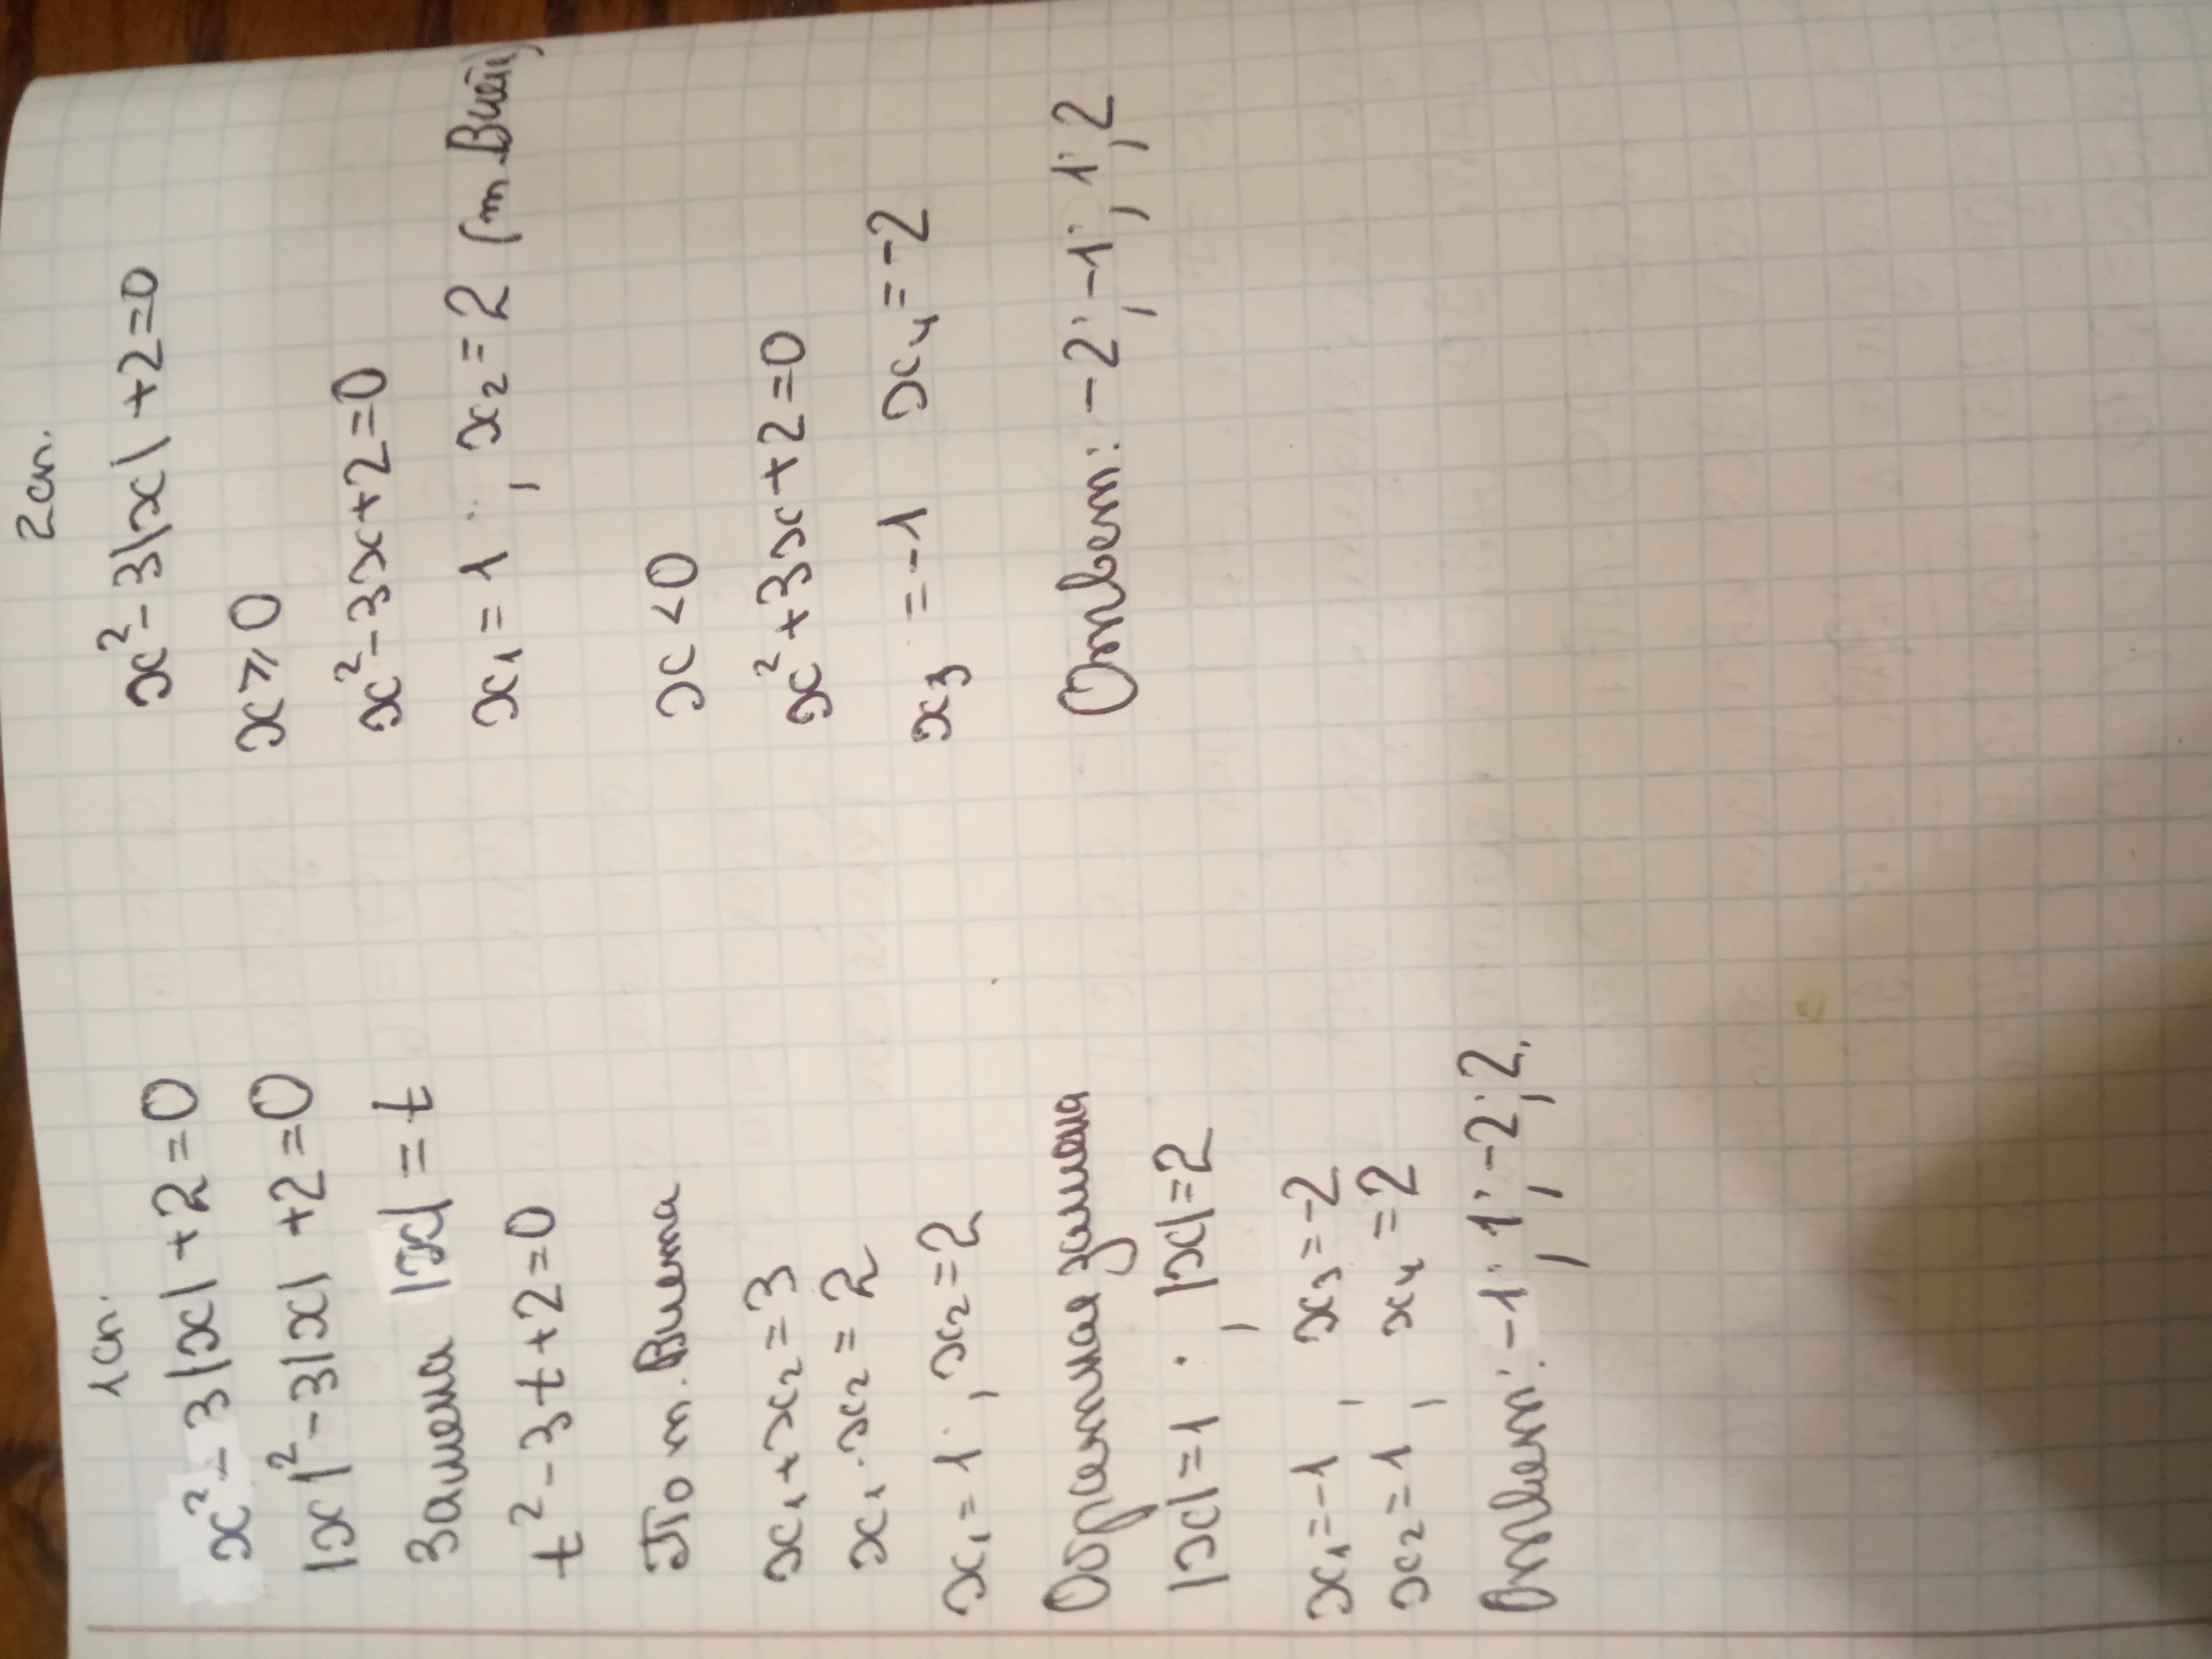 1сп.
x² - 3|x| + 2 = 0
|x|² - 3|x| + 2 = 0
Замена |x| = t
t² - 3t + 2 = 0
По т. Виета
x₁ + x₂ = 3
x₁ · x₂ = 2
x₁ = 1 ; x₂ = 2
Обратная замена
|x| = 1 ; |x| = 2
x₁ = -1 , x₃ = -2
x₂ = 1 , x₄ = 2
Ответ: -1; 1; -2; 2.
2сп.
x² - 3|x| + 2 = 0
x ⩾ 0
x² - 3x + 2 = 0
x₁ = 1 ; x₂ = 2 (т. Виета)
x < 0
x² + 3x + 2 = 0
x₃ = -1 x₄ = -2
Ответ: -2; -1; 1; 2